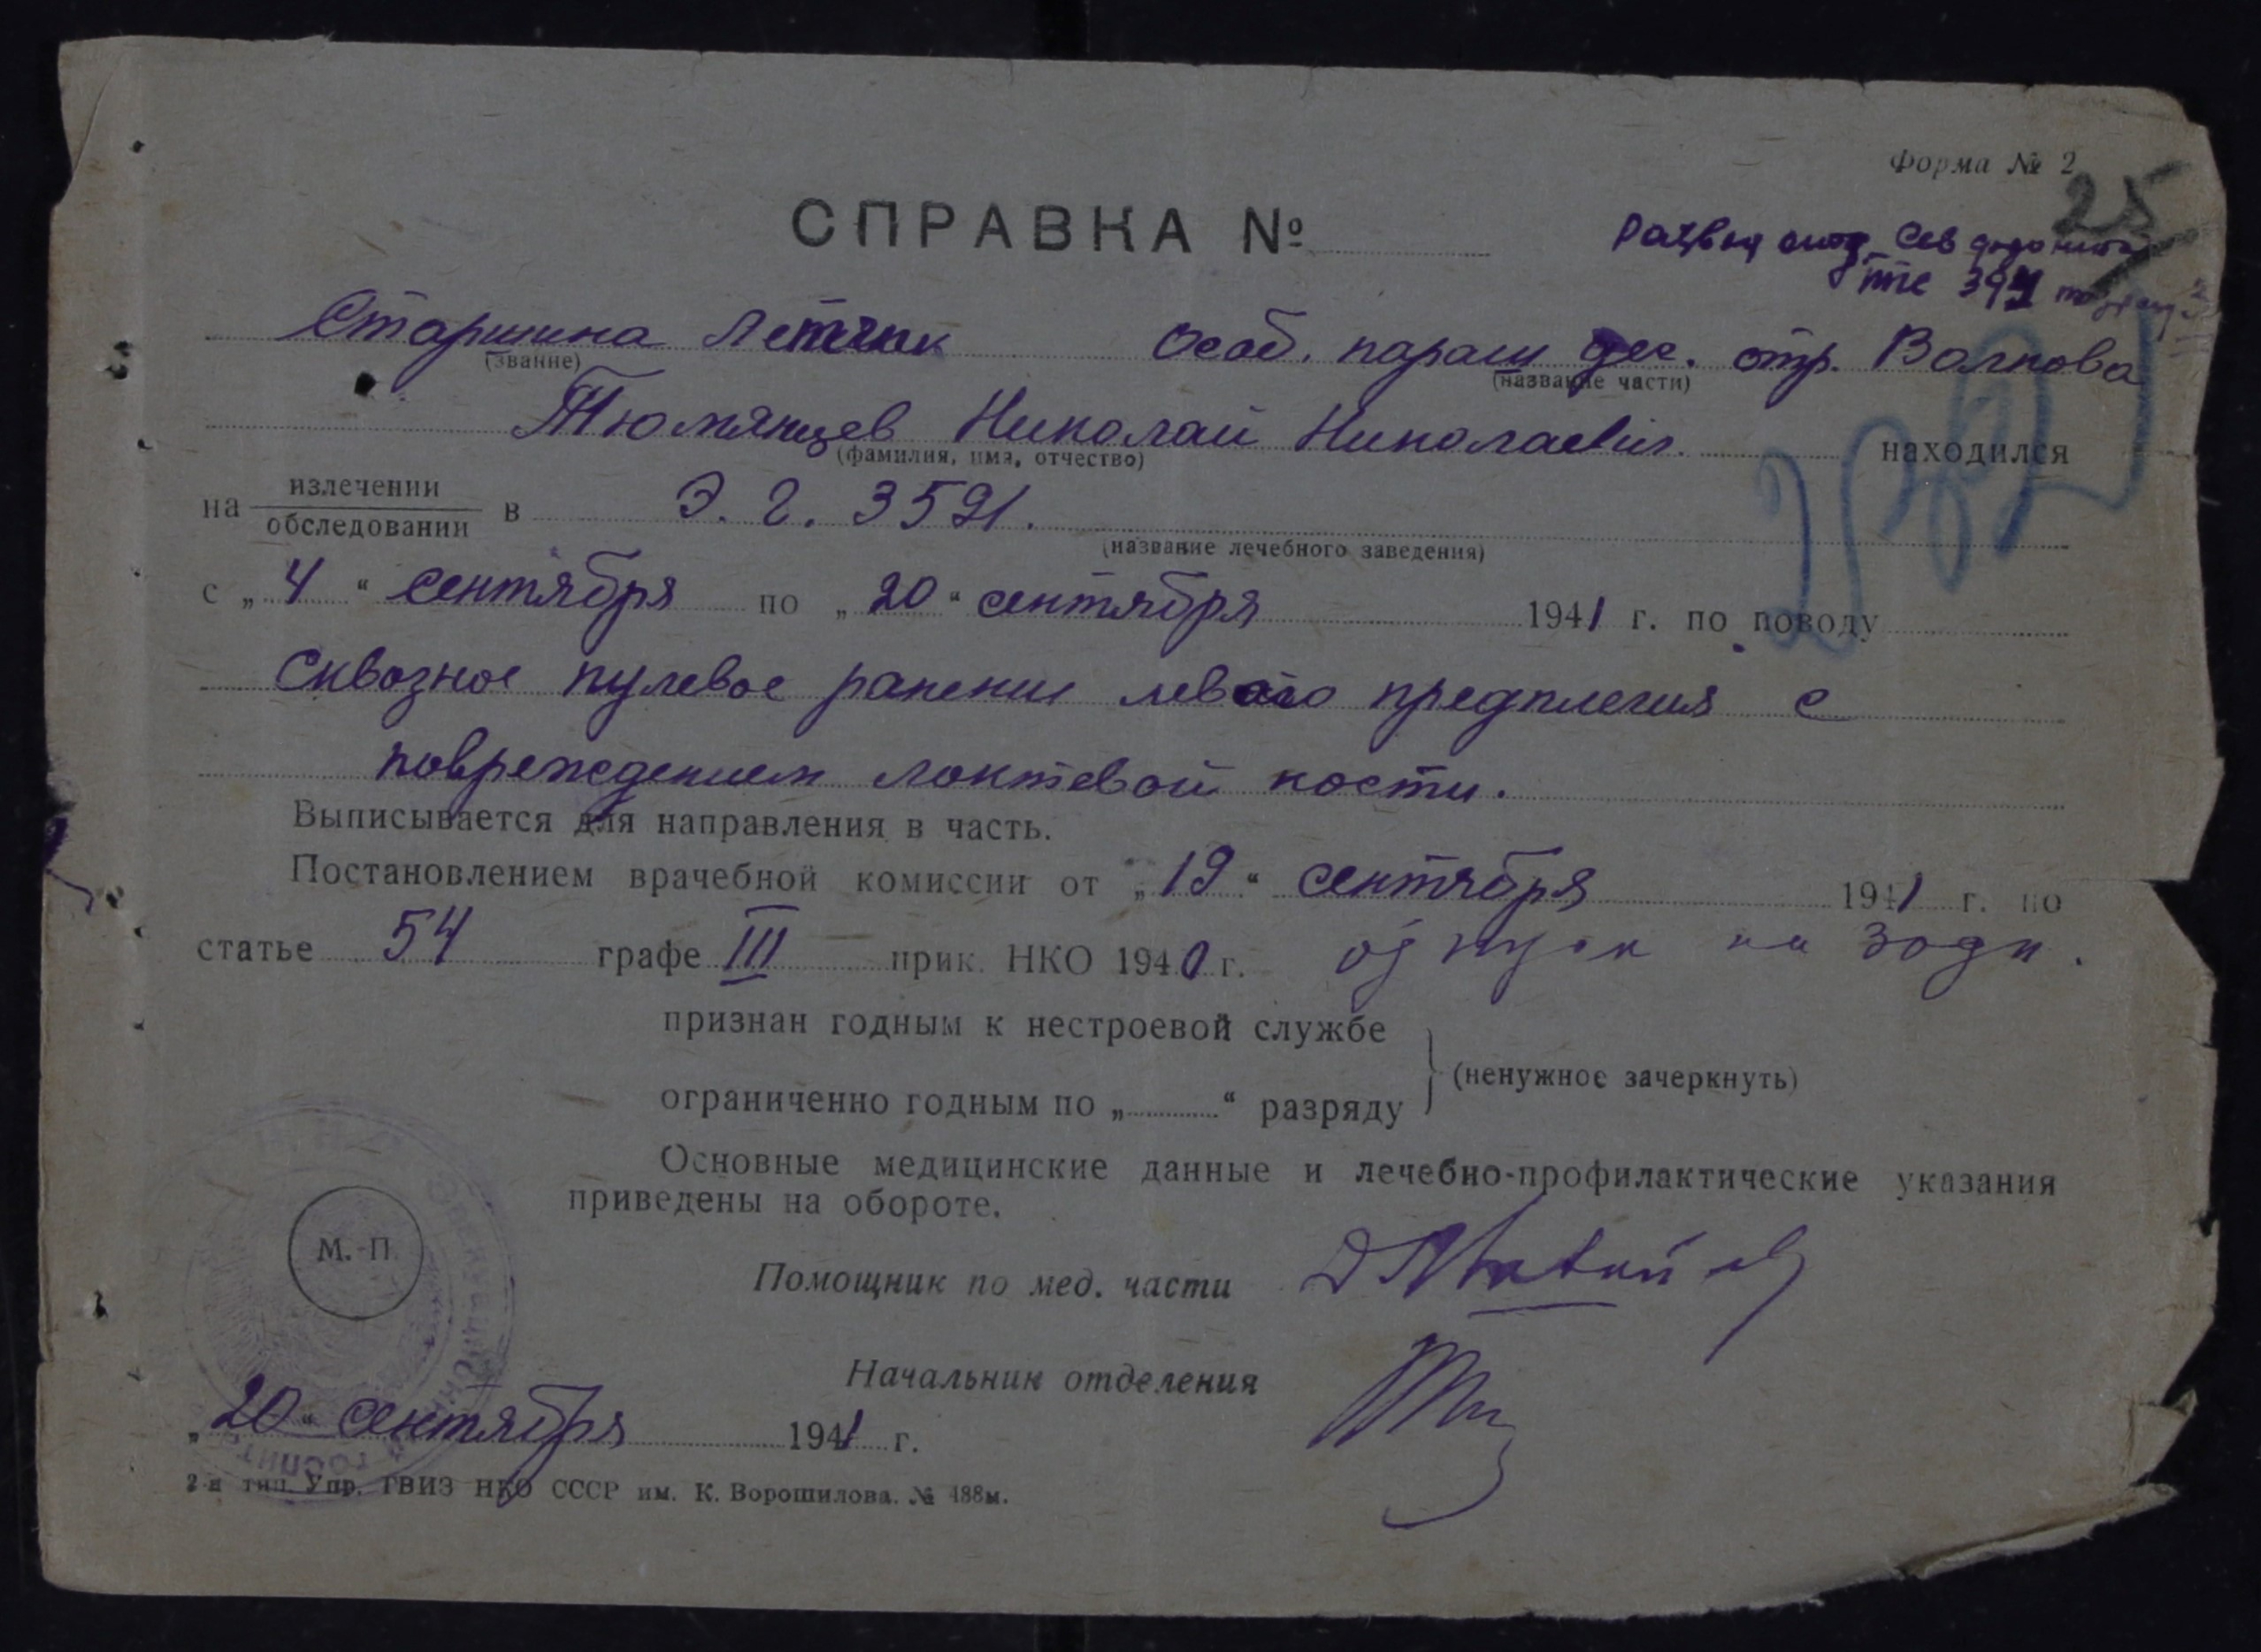 Форма № 2
25
СПРАВКА №
Развед отд. Сев
ппс 394
Старшина Летчик Особ. параш дес. отр. Волкова
(звание) (название части)
Тюмянцев Николай Николаевич. находился
(фамилия, имя, отчество)
на излечении обследовании в Э. Г. 3591.
(название лечебного заведения)
с „4“ сентября по „20“ сентября 1941 г. по поводу
Сквозное пулевое ранение левого предплечия с
повреждением локтевой кости.
Выписывается для направления в часть.
Постановлением врачебной комиссии от „19“ сентября 1941 г. по
статье 54 графе III прик. НКО 1940 г. отпуск на 30 дн.
признан годным к нестроевой службе
ограниченно годным по „ “ разряду
(ненужное зачеркнуть)
Основные медицинские данные и лечебно-профилактические указания
приведены на обороте.
М. П.
Помощник по мед. части
Начальник отделения
„20“ сентября 1941 г.
2-я тип. Упр. ГВИЗ НКО СССР им. К. Ворошилова. № 488м.